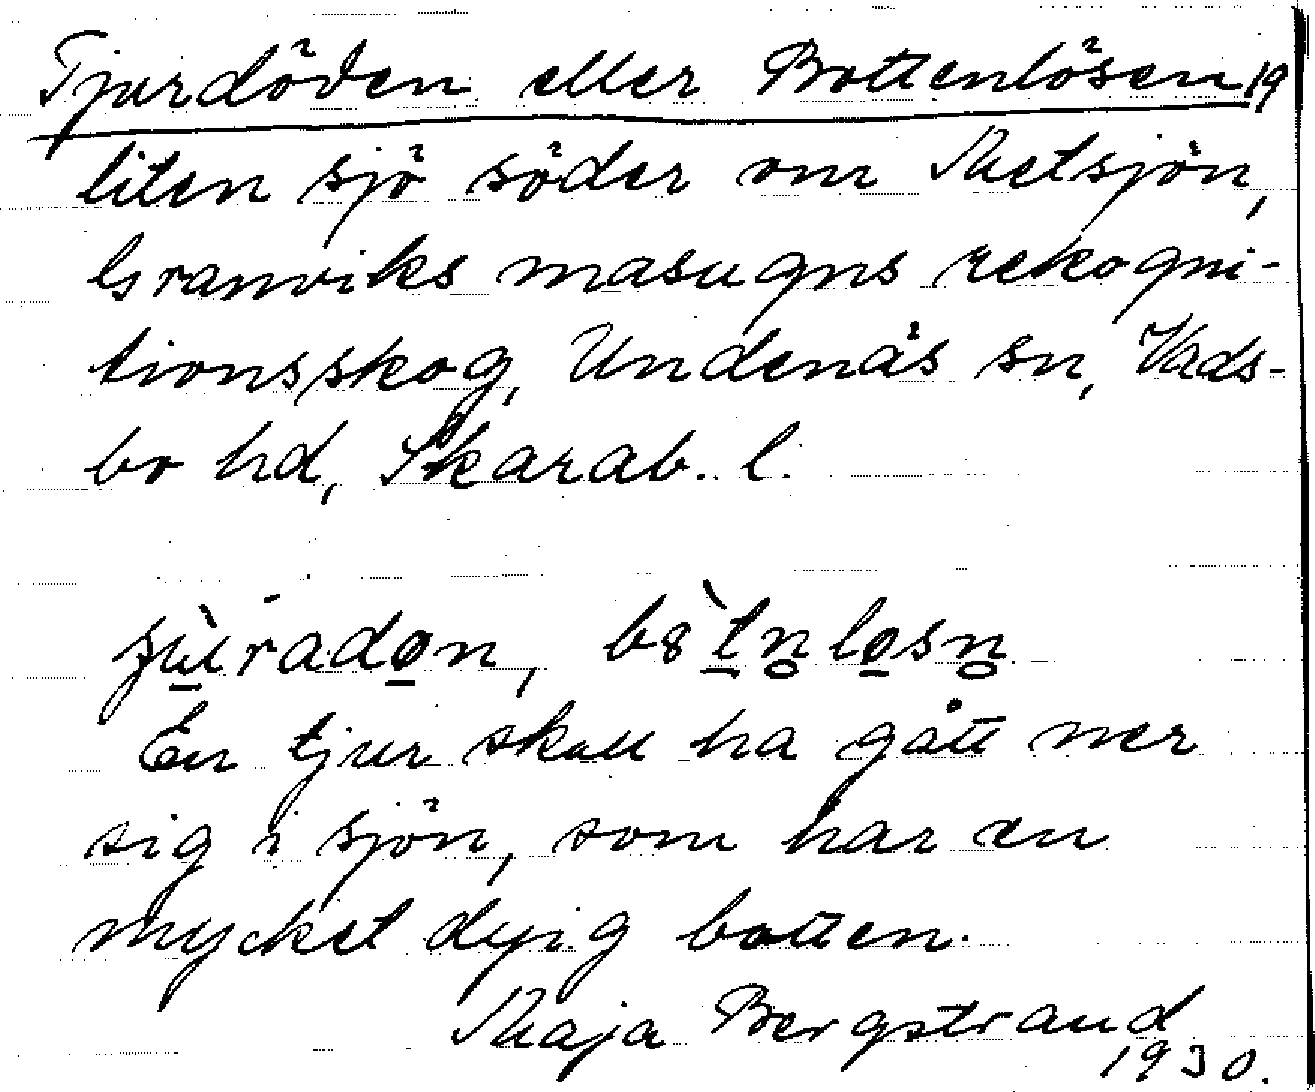 Tjurdöden eller Bottenlösen 19
liten sjö söder om Metsjön,
Granviks masugns rekogni-
tionsskog, Undenäs sn, Vads-
bo hd, Skarab. l.
En tjur skall ha gått ner
sig i sjön, som har en
mycket dyig botten.
Maja Bergstrand
1930.